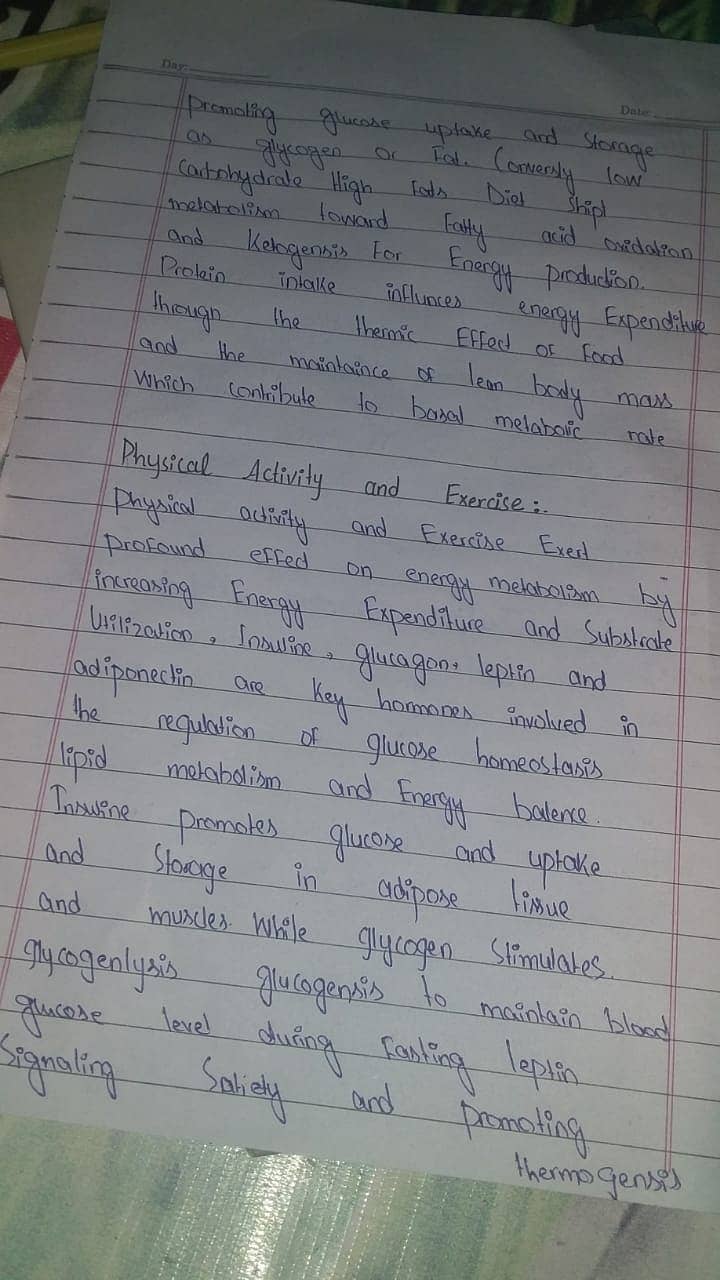 Day:
Date:
promoting glucose uptake and storage
as glycogen or Fat. Conversly low
Carbohydrate High Fats Diet Shipt
metabolism toward Fatty acid oxidation
and Ketogensis For Energy production.
Protein intake influnces energy Expenditure
through the thermic Effect of Food
and the maintaince of lean body mass
Which contribute to basal metabolic rate
Physical Activity and Exercise:.
Physical activity and Exercise Exert
profound effect on energy metabolism by
increasing Energy Expenditure and Substrate
Utilization, Insuline, glucagon, leptin and
adiponectin are key hormones involved in
the regulation of glucose homeostasis
lipid metabolism and Energy balence.
Insuline promotes glucose and uptake
and Storage in adipose tissue
and muscles. While glycogen Stimulates.
glycogenlysis glucogensis to maintain blood
glucose level during Fasting leptin
Signaling Satiety and promoting
thermogensis